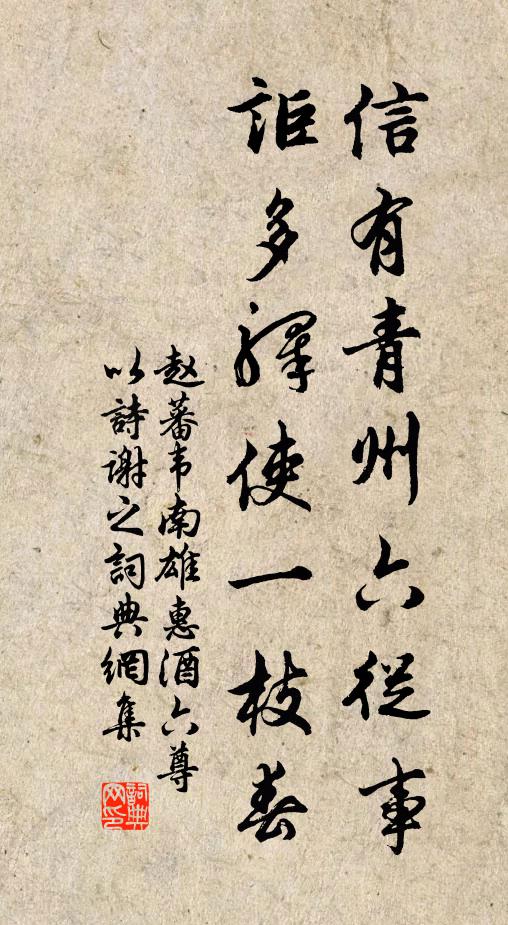 信有青州六從事
詎多驛使一枝春
赵蕃韦南雄惠酒六尊
以詩谢之詞典網集
詞典网印